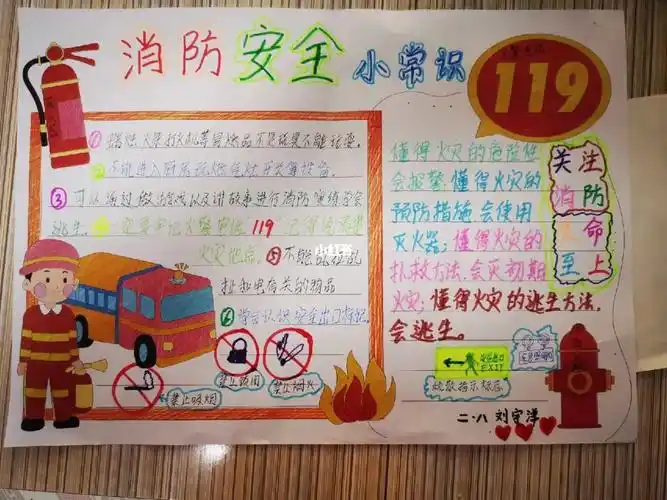 消防安全小常识
119
① 蜡烛火柴打火机等易燃品不是玩具不能玩耍。
② 不能进入厨房玩燃气灶开关等设备。
③ 可以通过做游戏以及讲故事进行消防演练学会
逃生。
一定要牢记火警电话"119"
火灾地点。⑤不能乱拉乱
扯和电有关的物品
⑥ 学会认识安全出口标识。
小红书
禁止吸烟
禁止烟火
懂得火灾的危险性
会报警 懂得火灾的
预防措施会使用
灭火器;懂得火灾的
扑救方法,会灭初期
火灾;懂得火灾的逃生方法,
会逃生。
关注
消防
命
至上
EXIT
疏散指示标志
二·八 刘宇洋